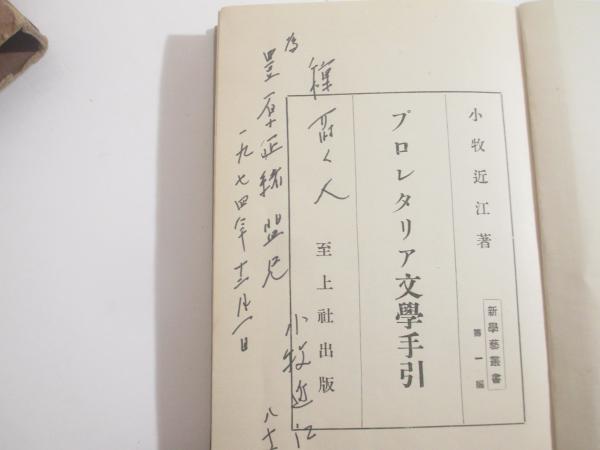 新學藝叢書
第一編
小牧近江著
プロレタリア文學手引
至上社出版
人
為
豊原
盟兄
一九七四年十二月一日
小牧近江